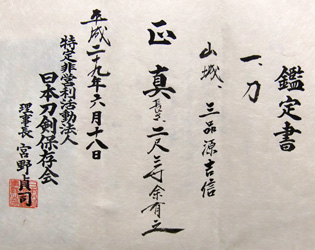 鑑定書
一、刀
山城、三品源吉信
正真 長サ、二尺三寸余有之
平成二十九年六月十八日
特定非営利活動法人
日本刀剣保存会
理事長 宮野貞司